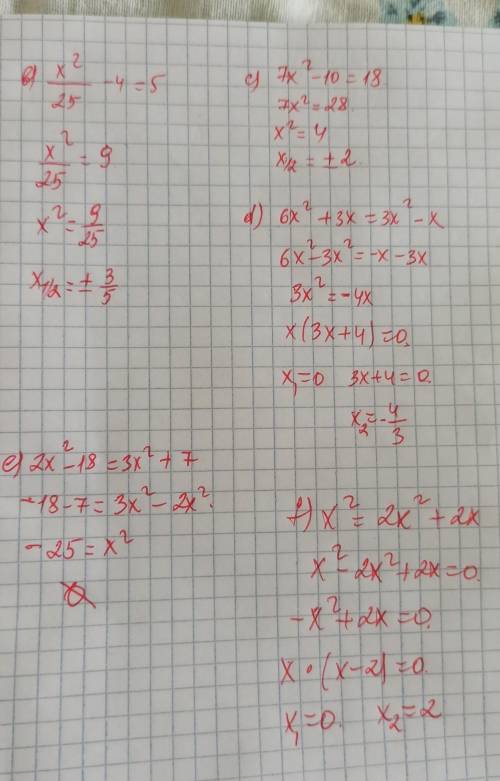 в) x²/25 - 4 = 5
x²/25 = 9
x² = 9/25
x₁/₂ = ± 3/5
c) 7x² - 10 = 18
7x² = 28
x² = 4
x₁/₂ = ± 2
d) 6x² + 3x = 3x² - x
6x² - 3x² = -x - 3x
3x² = -4x
x(3x + 4) = 0.
x₁ = 0 3x + 4 = 0.
x₂ = - 4/3
e) 2x² - 18 = 3x² + 7
-18 - 7 = 3x² - 2x².
-25 = x²
∅
f) x² = 2x² + 2x
x² - 2x² + 2x = 0.
-x² + 2x = 0.
x · (x - 2) = 0.
x₁ = 0. x₂ = 2